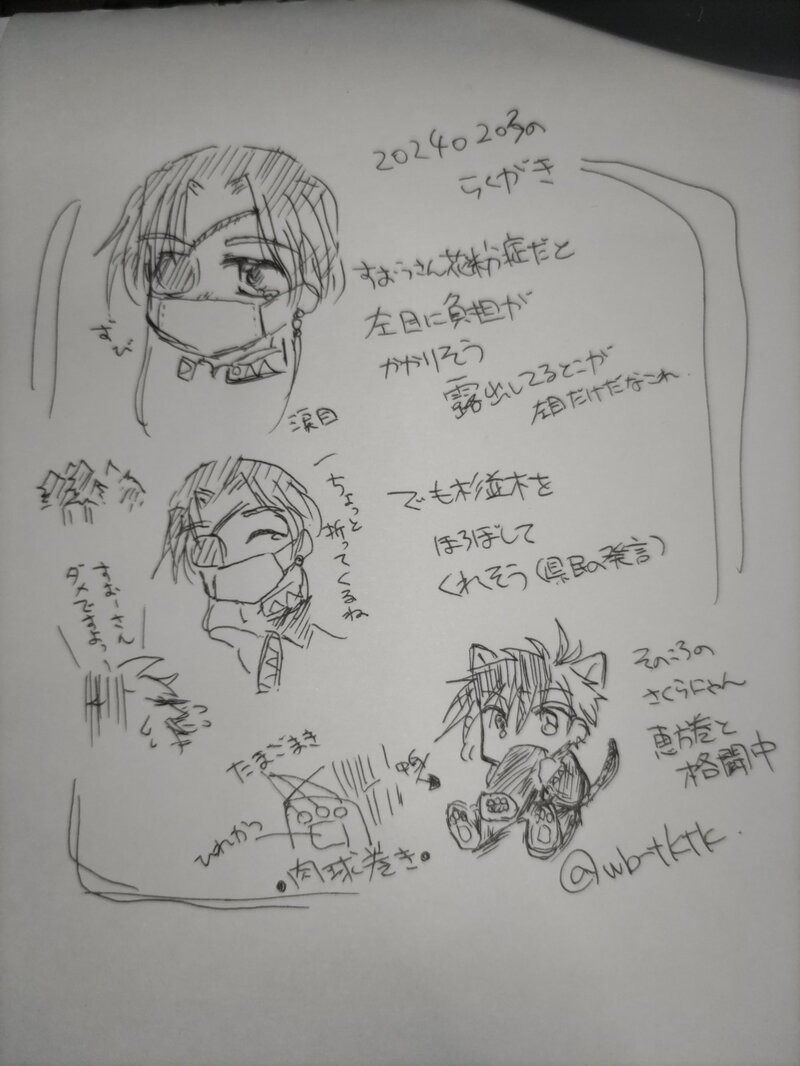 20240203の
らくがき
すおうさん花粉症だと
左目に負担が
かかりそう
露出してるとこが
左目だけだなこれ
ずび
涙目
ちょっと
折ってくるね
でも杉並木を
ほろぼして
くれそう(県民の発言)
すおーさん
ダメですよっ
そのころの
さくらにゃん
恵方巻と
格闘中
たまごまき
中身
ひれかつ
・肉球巻き・
@wb-tktk.